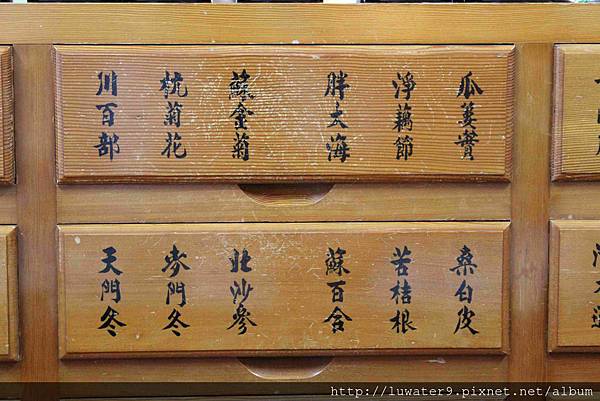 瓜蔞實
淨藕節
胖大海
蘇金菊
杭菊花
川百部
桑白皮
苦桔根
蘇百合
北沙參
麥門冬
天門冬
http://luwater9.pixnet.net/album